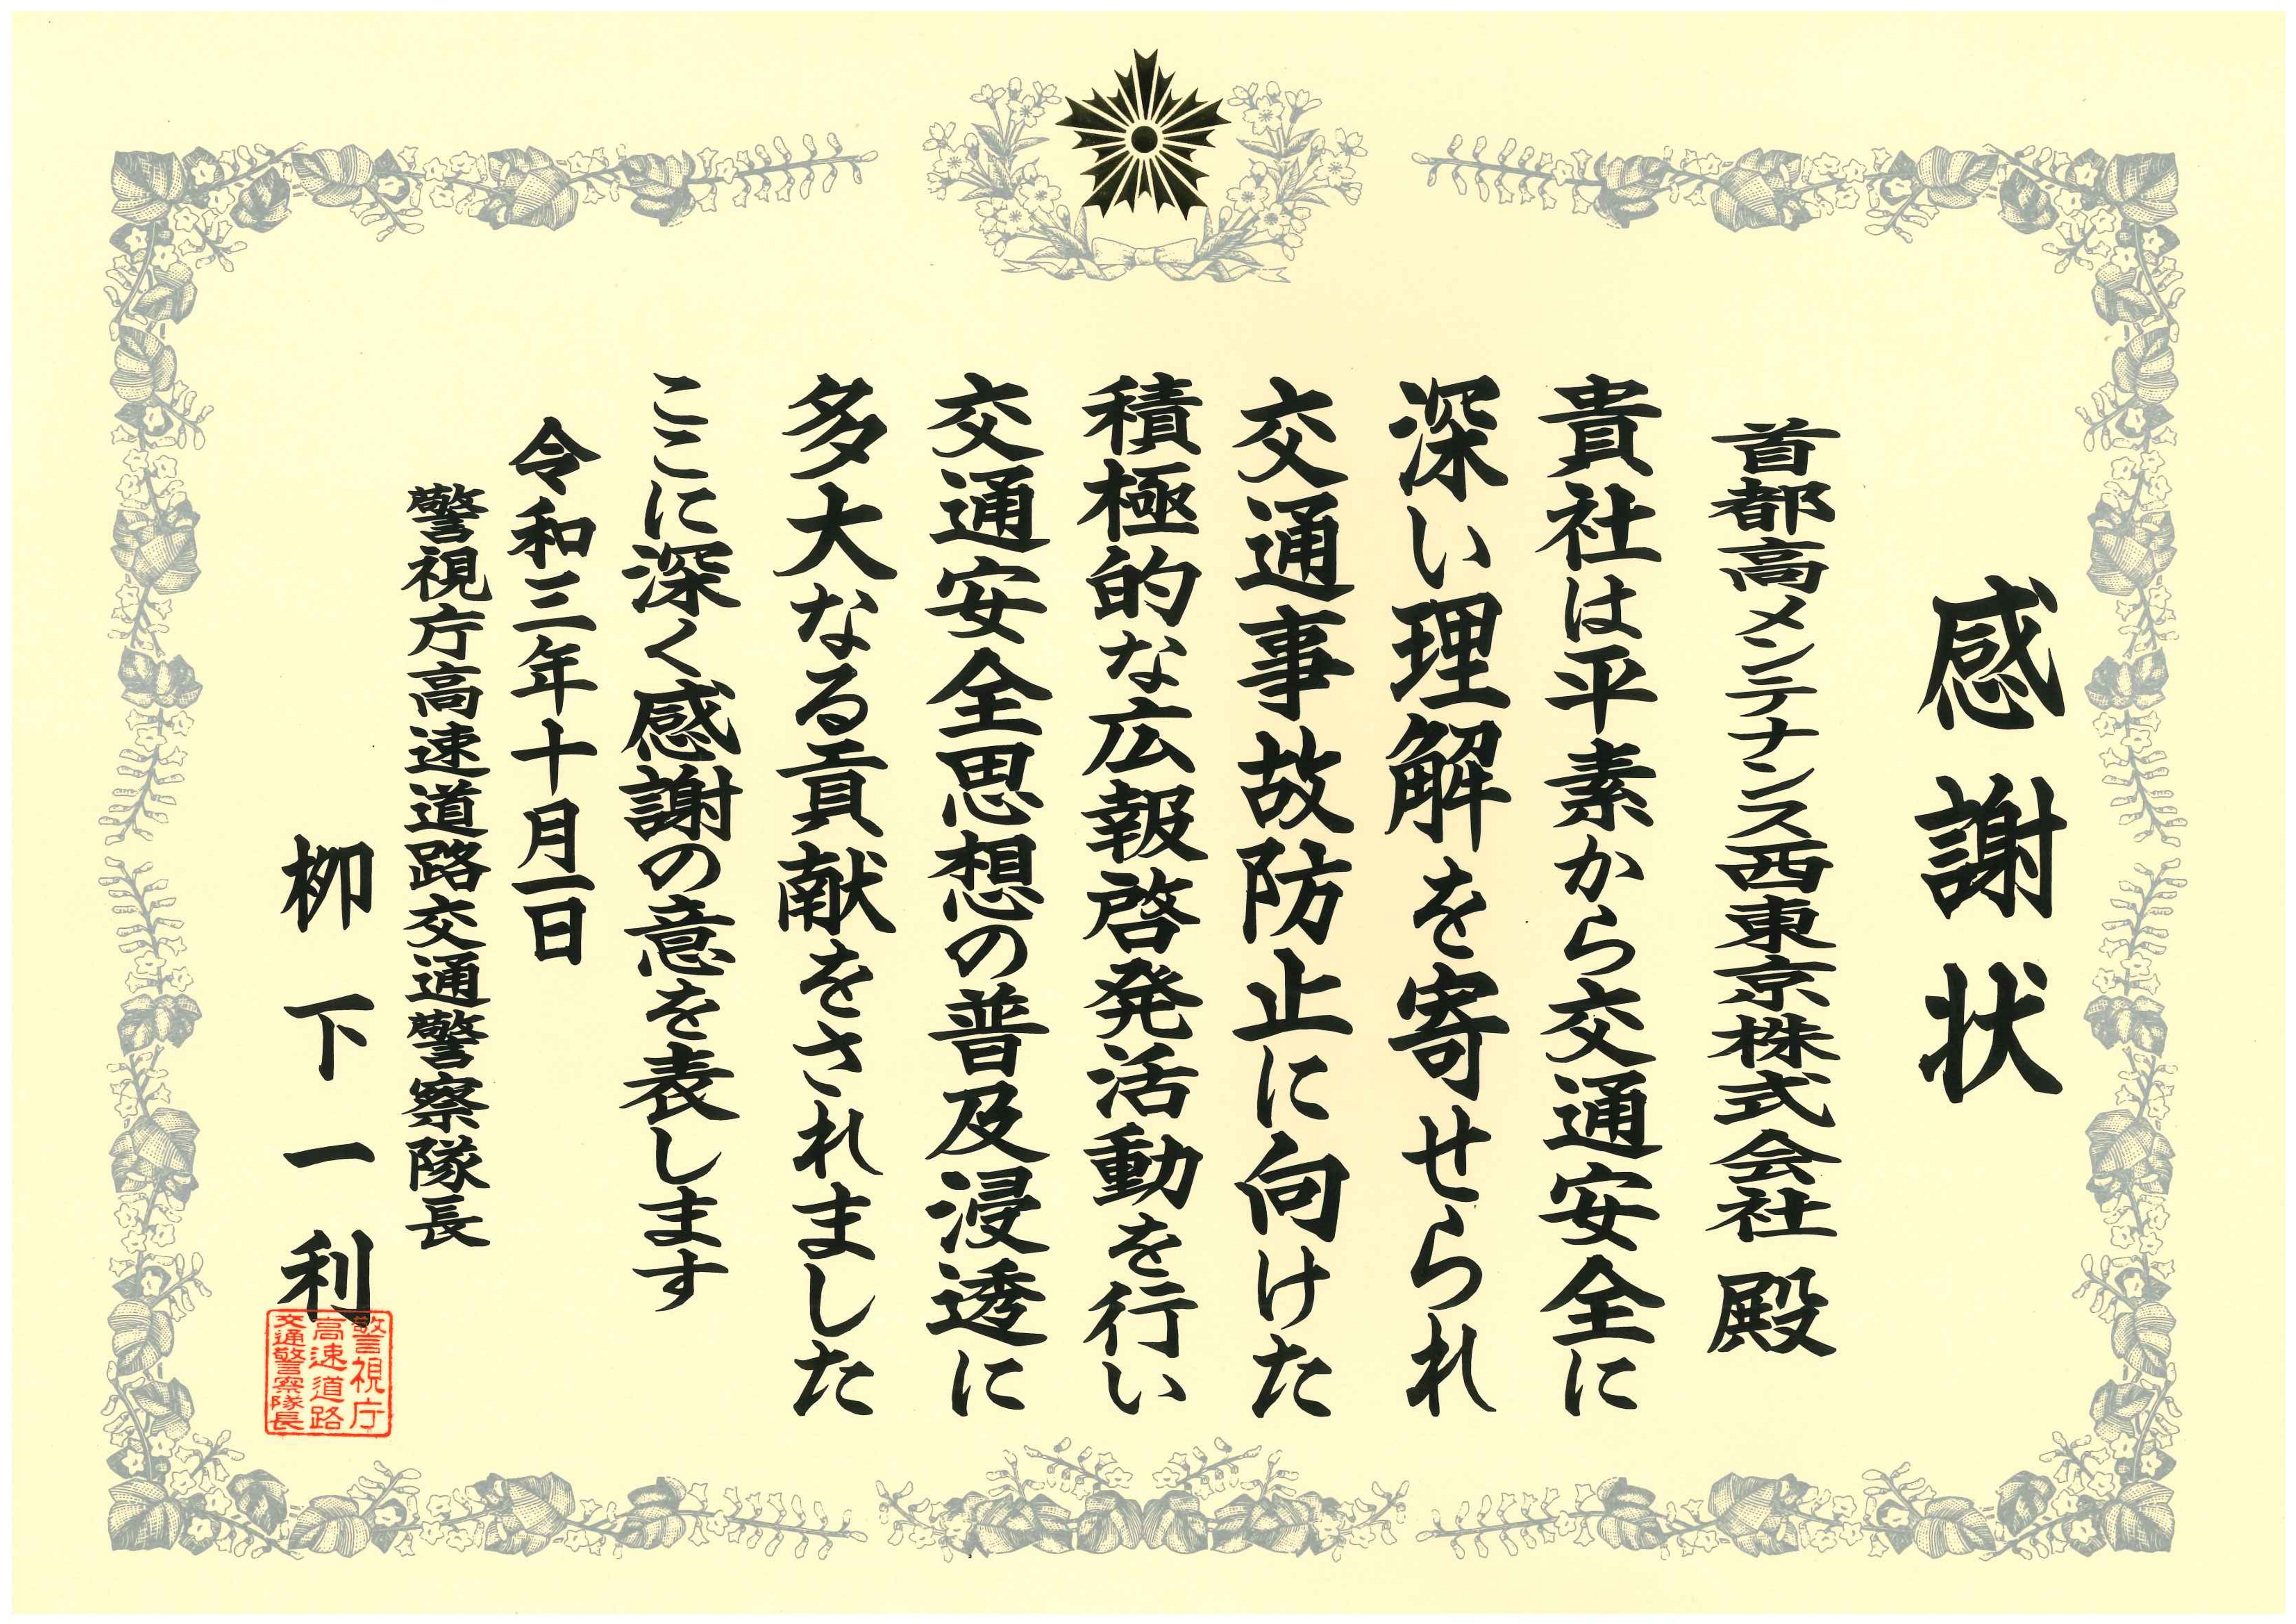 感謝状
首都高メンテナンス西東京株式会社 殿
貴社は平素から交通安全に
深い理解を寄せられ
交通事故防止に向けた
積極的な広報啓発活動を行い
交通安全思想の普及浸透に
多大なる貢献をされました
ここに深く感謝の意を表します
令和三年十月一日
警視庁高速道路交通警察隊長
栁下一利
警視庁
高速道路
交通警察隊長